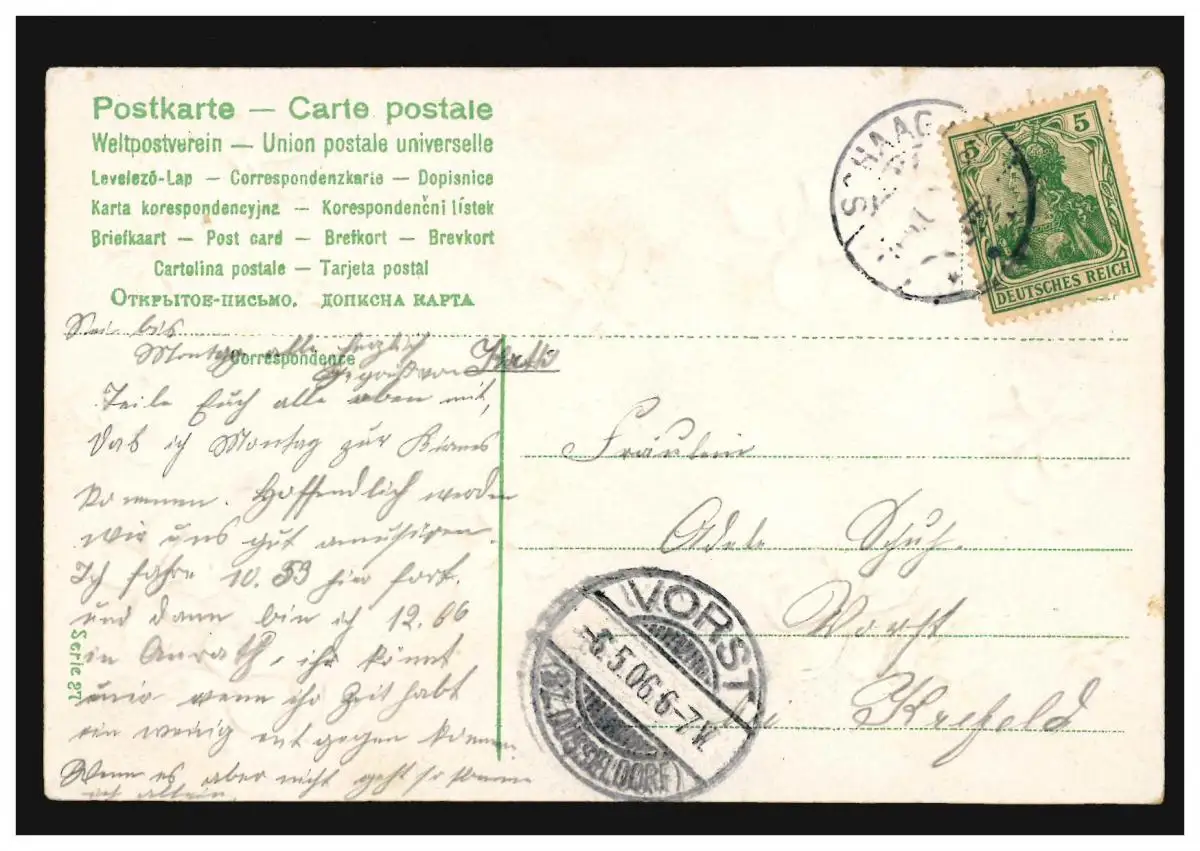 Postkarte — Carte postale
Weltpostverein — Union postale universelle
Levelező-Lap — Correspondenzkarte — Dopisnice
Karta korespondencyjna — Korespondenčni lístek
Briefkaart — Post card — Brefkort — Brevkort
Cartolina postale — Tarjeta postal
Открытое-письмо. дописна карта
SCHAAG
5 5
DEUTSCHES REICH
Sei bis
Montag alle herzlich
gegrüßt von Kathi
Correspondence
Teile Euch alle eben mit,
das ich Montag zur Kirmes
kommen. Hoffendlich werden
wir uns gut amusüren.
Ich fahre 10.53 hier fort.
und dann bin ich 12.06
in Anrath, ihr könnt
mir wenn ihr Zeit habt
ein wenig entgegen kommen
Wenn es aber nicht geht so komme
ich allein.
Serie 27
Fräulein
Adele Schuh.
Vorst
bei Krefeld
VORST
-6.5.06.6-7N.
(BZ. DÜSSELDORF)